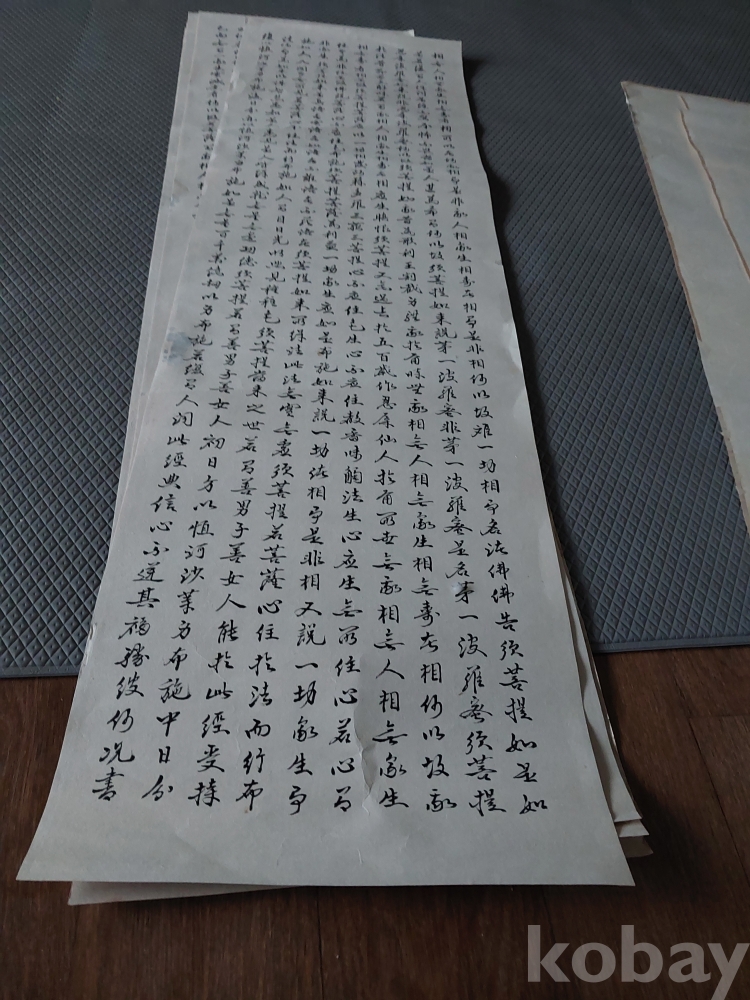 相無人相無衆生相無壽者相所以者何我相即是非我人相衆生相壽者相即是非相何以故離一切相即名諸佛佛告須菩提如是如
是若復有人得聞是經不驚不怖不畏當知是人甚為希有何以故須菩提如來說第一波羅蜜非第一波羅蜜是名第一波羅蜜須菩提
忍辱波羅蜜如來說非忍辱波羅蜜何以故須菩提如我昔為歌利王割截身體我於爾時無我相無人相無衆生相無壽者相何以故我
於往昔節節支解時若有我相人相衆生相壽者相應生瞋恨須菩提又念過去於五百世作忍辱仙人於爾所世無我相無人相無衆生
相無壽者相是故須菩提菩薩應離一切相發阿耨多羅三藐三菩提心不應住色生心不應住聲香味觸法生心應生無所住心若心有
住即為非住是故佛說菩薩心不應住色布施須菩提菩薩為利益一切衆生應如是布施如來說一切諸相即是非相又說一切衆生即
非衆生須菩提如來是真語者實語者如語者不誑語者不異語者須菩提如來所得法此法無實無虛須菩提若菩薩心住於法而行布
施如人入闇即無所見若菩薩心不住法而行布施如人有目日光明照見種種色須菩提當來之世若有善男子善女人能於此經受持
讀誦即為如來以佛智慧悉知是人悉見是人皆得成就無量無邊功德須菩提若有善男子善女人初日分以恒河沙等身布施中日分
復以恒河沙等身布施後日分亦以恒河沙等身布施如是無量百千萬億劫以身布施若復有人聞此經典信心不逆其福勝彼何況書
kobay